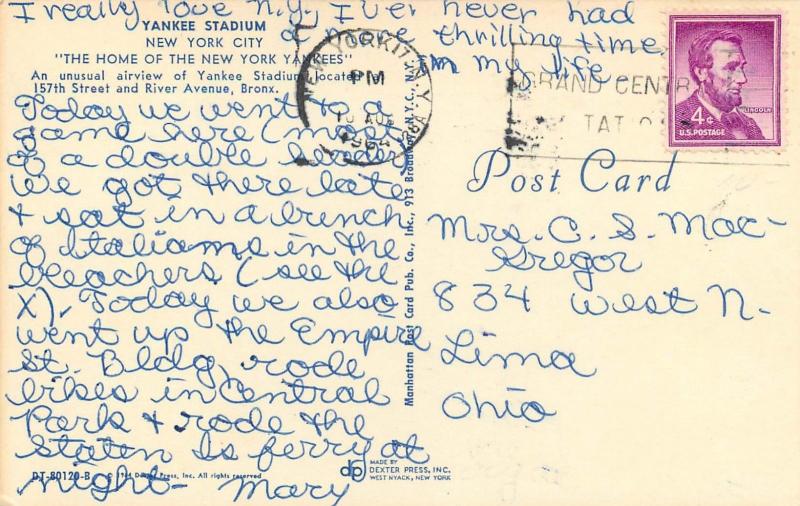 I really love N.Y. I've never had
a more thrilling time
in my life.
YANKEE STADIUM
NEW YORK CITY
"THE HOME OF THE NEW YORK YANKEES"
An unusual airview of Yankee Stadium located at
157th Street and River Avenue, Bronx.
Today we went to a
game here (most
of a double header
We got there late
& sat in a bunch
of Italians in the
bleachers (see the
X). Today we also
went up the Empire
St. Bldg, rode
bikes in Central
Park & rode the
staten Is ferry at
night - Mary
DT-80120-B
Dexter Press, Inc. All rights reserved
Manhattan Post Card Pub. Co., Inc., 913 Broadway, N.Y.C.
MADE BY
DEXTER PRESS, INC.
WEST NYACK, NEW YORK
NEW YORK N.Y.
PM
AUG
1964
GRAND CENTR
TATIO
LINCOLN
4¢
U.S. POSTAGE
Post Card
Mrs. C. S. Mac-
Gregor
834 West N.
Lima
Ohio